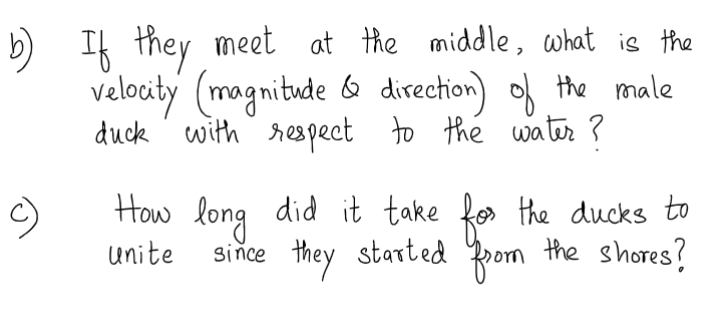 b) If they meet at the middle, what is the
velocity (magnitude & direction) of the male
duck with respect to the water?
c) How long did it take for the ducks to
unite since they started from the shores?